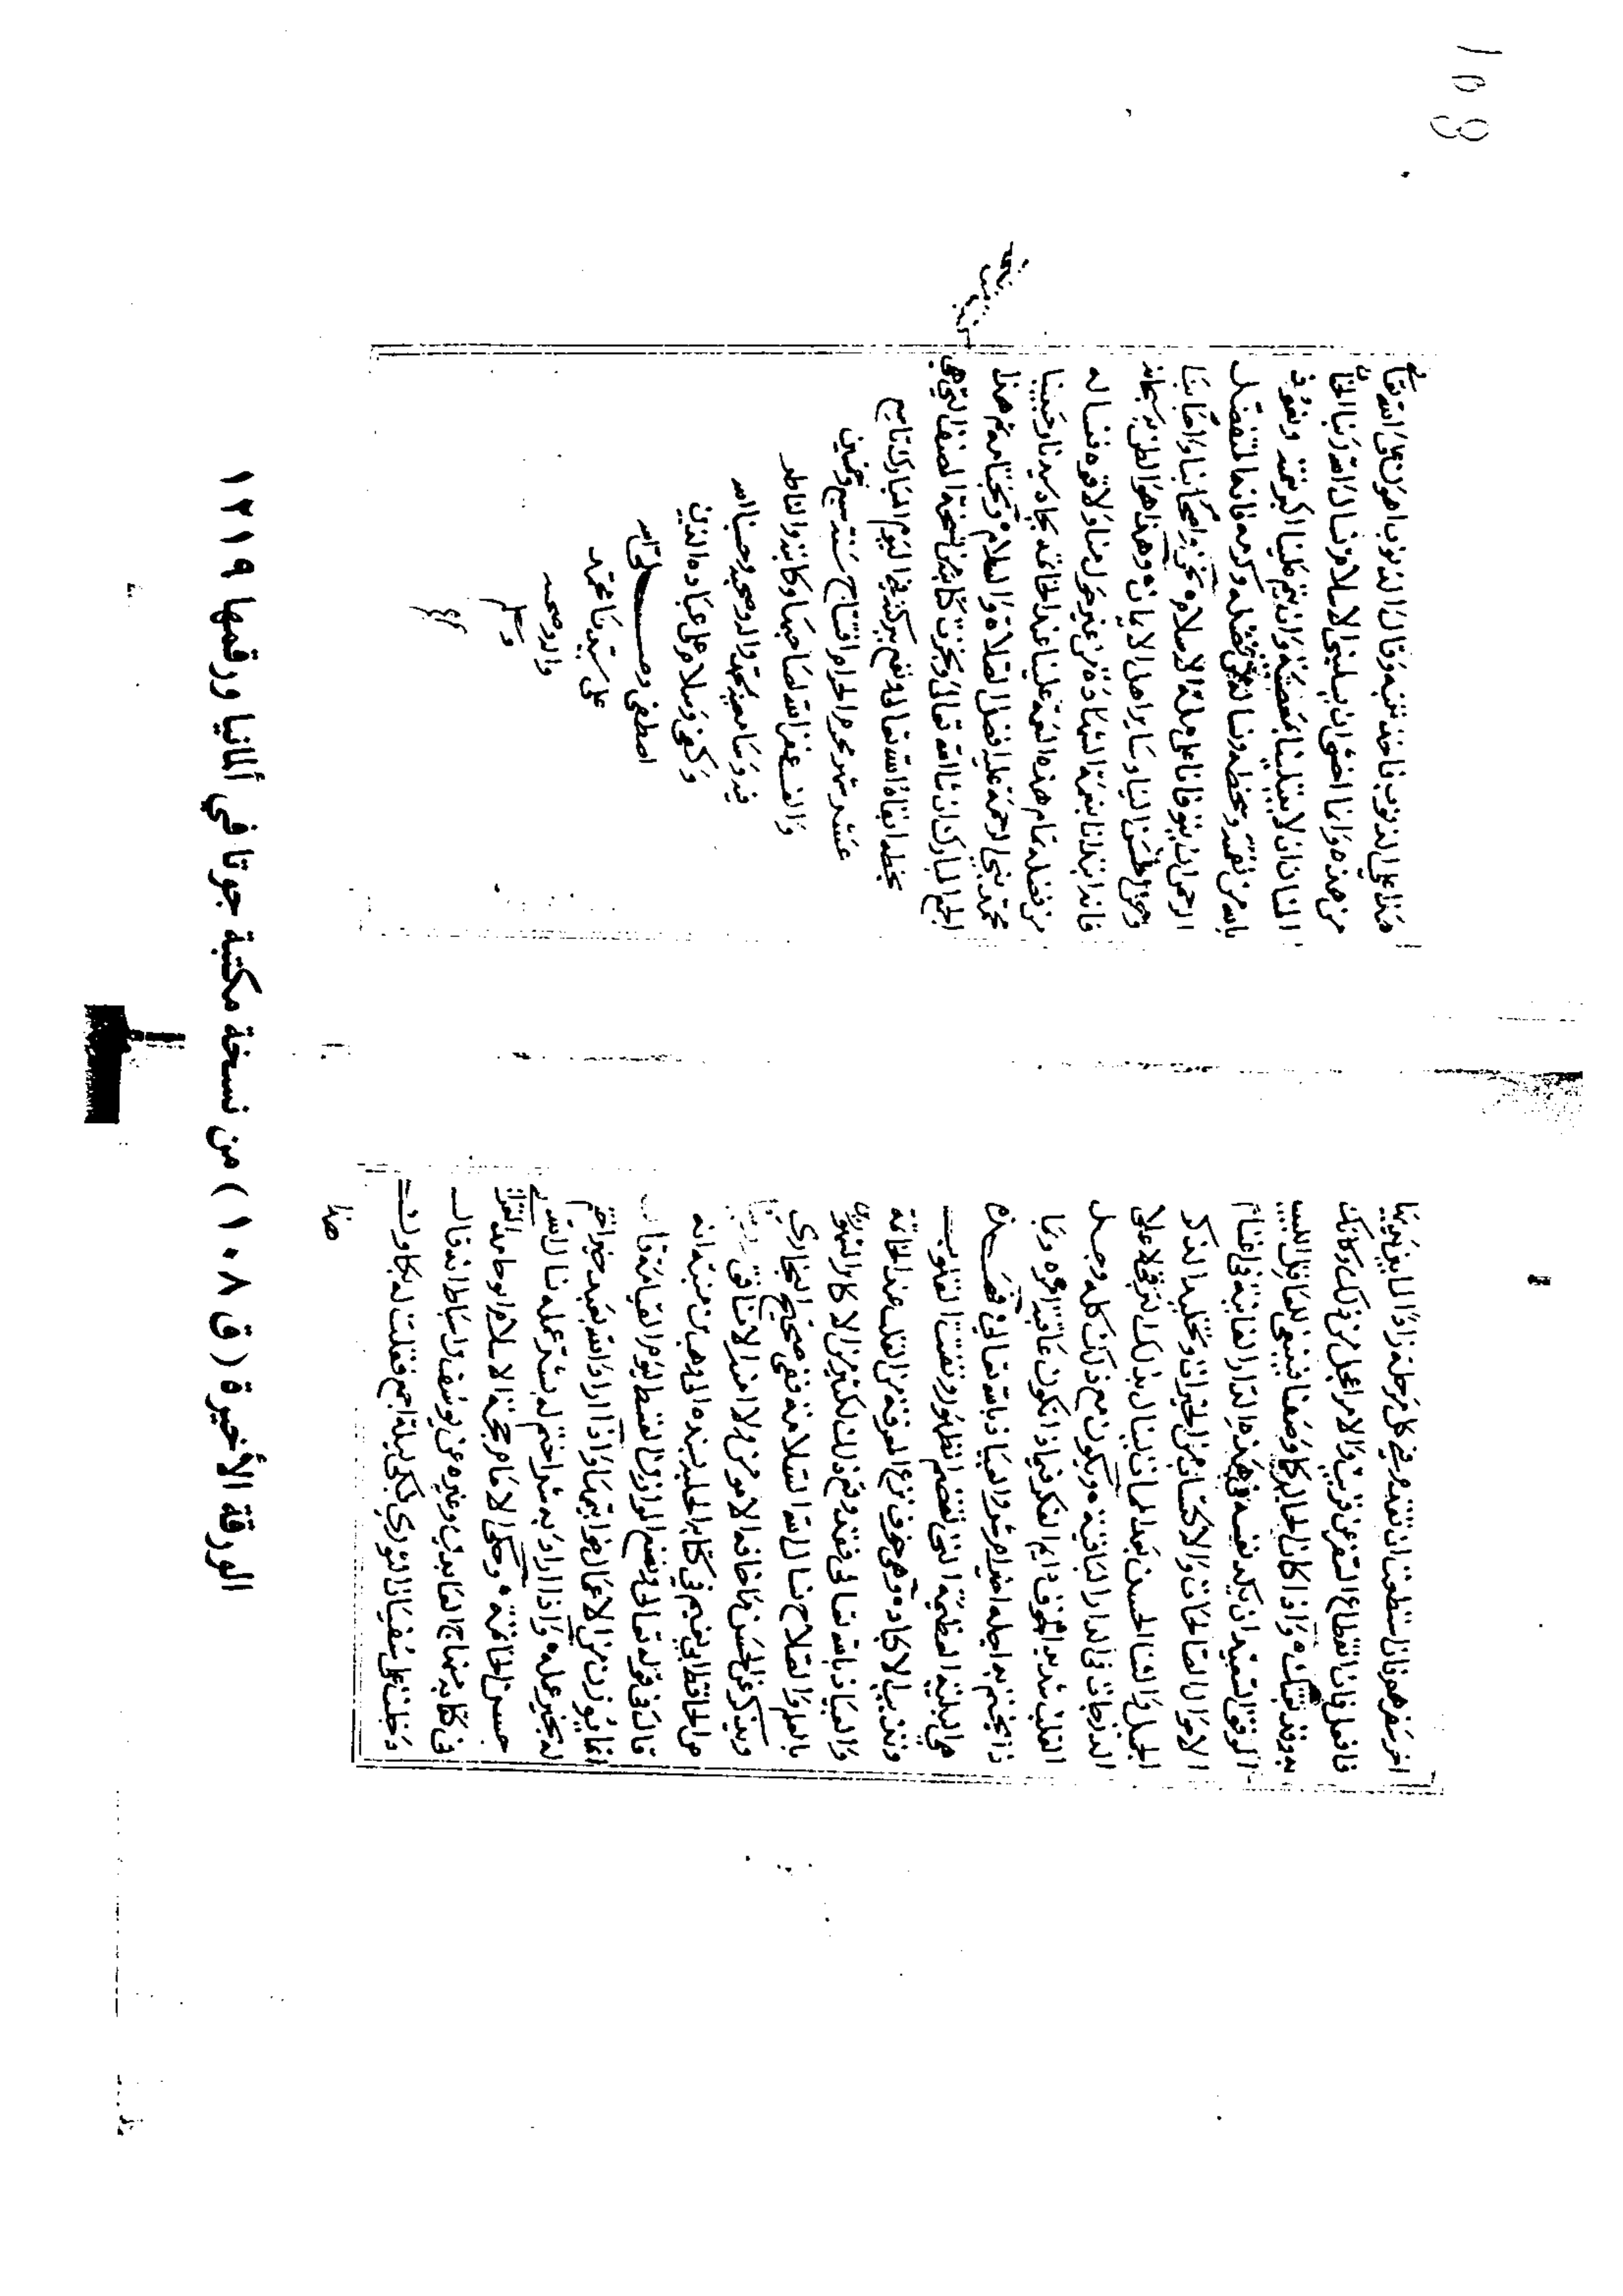 اخر سفر هوفان استطعت ان تقدم في كل مرحلة زادا لما بين يديها
فافعل فان انقطاع السفر عن قريب والامر اعجل من ذلك وكانك
به وقد بغتك واذا كان الحال كما وصفنا فينبغي للعاقل اللبيب
الموفق السعيد ان يكد نفسه في هذه الدار الفانية في اغتنام
الاحوال الصالحات والاكتساب من الخيرات وتخليد الذكر
الجميل والثنا الحسن بعد الممات لينال بذلك الترقي لاعلى
الدرجات في الدار الباقية ويكون مع ذلك كله وجل
القلب شديد الخوف دايم الفكر فيما ذا تكون عاقبة امره وبما
ذا يختم به اجله اخير ام شر والعياذ بالله تعالى فهذه
هي البلية العظيمة التي تقصم الظهور وتفتت القلوب
وتذيب الاكباد وهي خوف نزع المعرفة من القلب عند الخاتمة
والعياذ بالله تعالى فقد وقع ذلك لكثير من الاكابر المشهورين
بالعلم والصلاح نسال الله السلامة ففي صحيح البخاري
ويذكر عن الحسن ما خافه الا مومن ولا امنه الا منافق
الحافظ ابي نعيم في كتابه الحلية بسنده الى وهب بن منبه انه
قال في قوله تعالى ونضع الموازين القسط ليوم القيامة قال
انما يوزن من الاعمال خواتيمها واذا اراد الله بعبد خيرا ختم
له بخير عمله واذا اراد به شرا ختم له بشر عمله نسال الله
حسن الخاتمة وحكى الامام حجة الاسلام ابو حامد الغزالي
في كتابه منهاج العابدين وغيره عن يوسف بن اسباط انه قال
دخلت على سفيان الثوري فبكى ليلته اجمع فقلت له بكاوك
هذا
هذا على الذنوب فاخذ تبنة وقال الذنوب اهون على الله تعالى
من هذه وانما اخشى ان يسلبني الاسلام نسال الله ربنا
المنان ان لا يبتلينا بمصيبة وان يتم علينا اكبر نعمه ونعوذ
بالله من نقمته وسخطه ونساله من فضله وكرمه فانه المتفضل
الرحمن ان يتوفانا على ملة الاسلام نحن واصحابنا واحبابنا
وسائر اهل الايمان وهذا هو الظن به سبحانه
فانه ابتدانا بنعمة الشهادة من غير حول منا ولا قوة فنساله
من فضله تمام هذه النعمة علينا عند الخاتمة بجاه سيدنا ونبينا
محمد نبي الرحمة عليه افضل الصلاة والسلام وبختامه تم هذا
الجمع المبارك ان شا الله تعالى ونجزت كتابته من نسخة المصنف التي هي
بخطه ابقاه الله تعالى ونفع ببركته في اليوم المبارك تاسع
عشر شهر محرم الحرام افتتاح سنة سبع وخمسين
والف غفر الله لصاحبها وكاتبه والناظر
فيه وسامعه بمحمد واله وصحبه وحسبنا الله
وكفى وسلام على عباده الذين
اصطفى وصلى الله
على سيدنا محمد
واله وصحبه
وسلم
108
الورقة الأخيرة ( ق ١٠٨ ) من نسخة مكتبة جوتا في ألمانيا ورقمها ١٢١٩